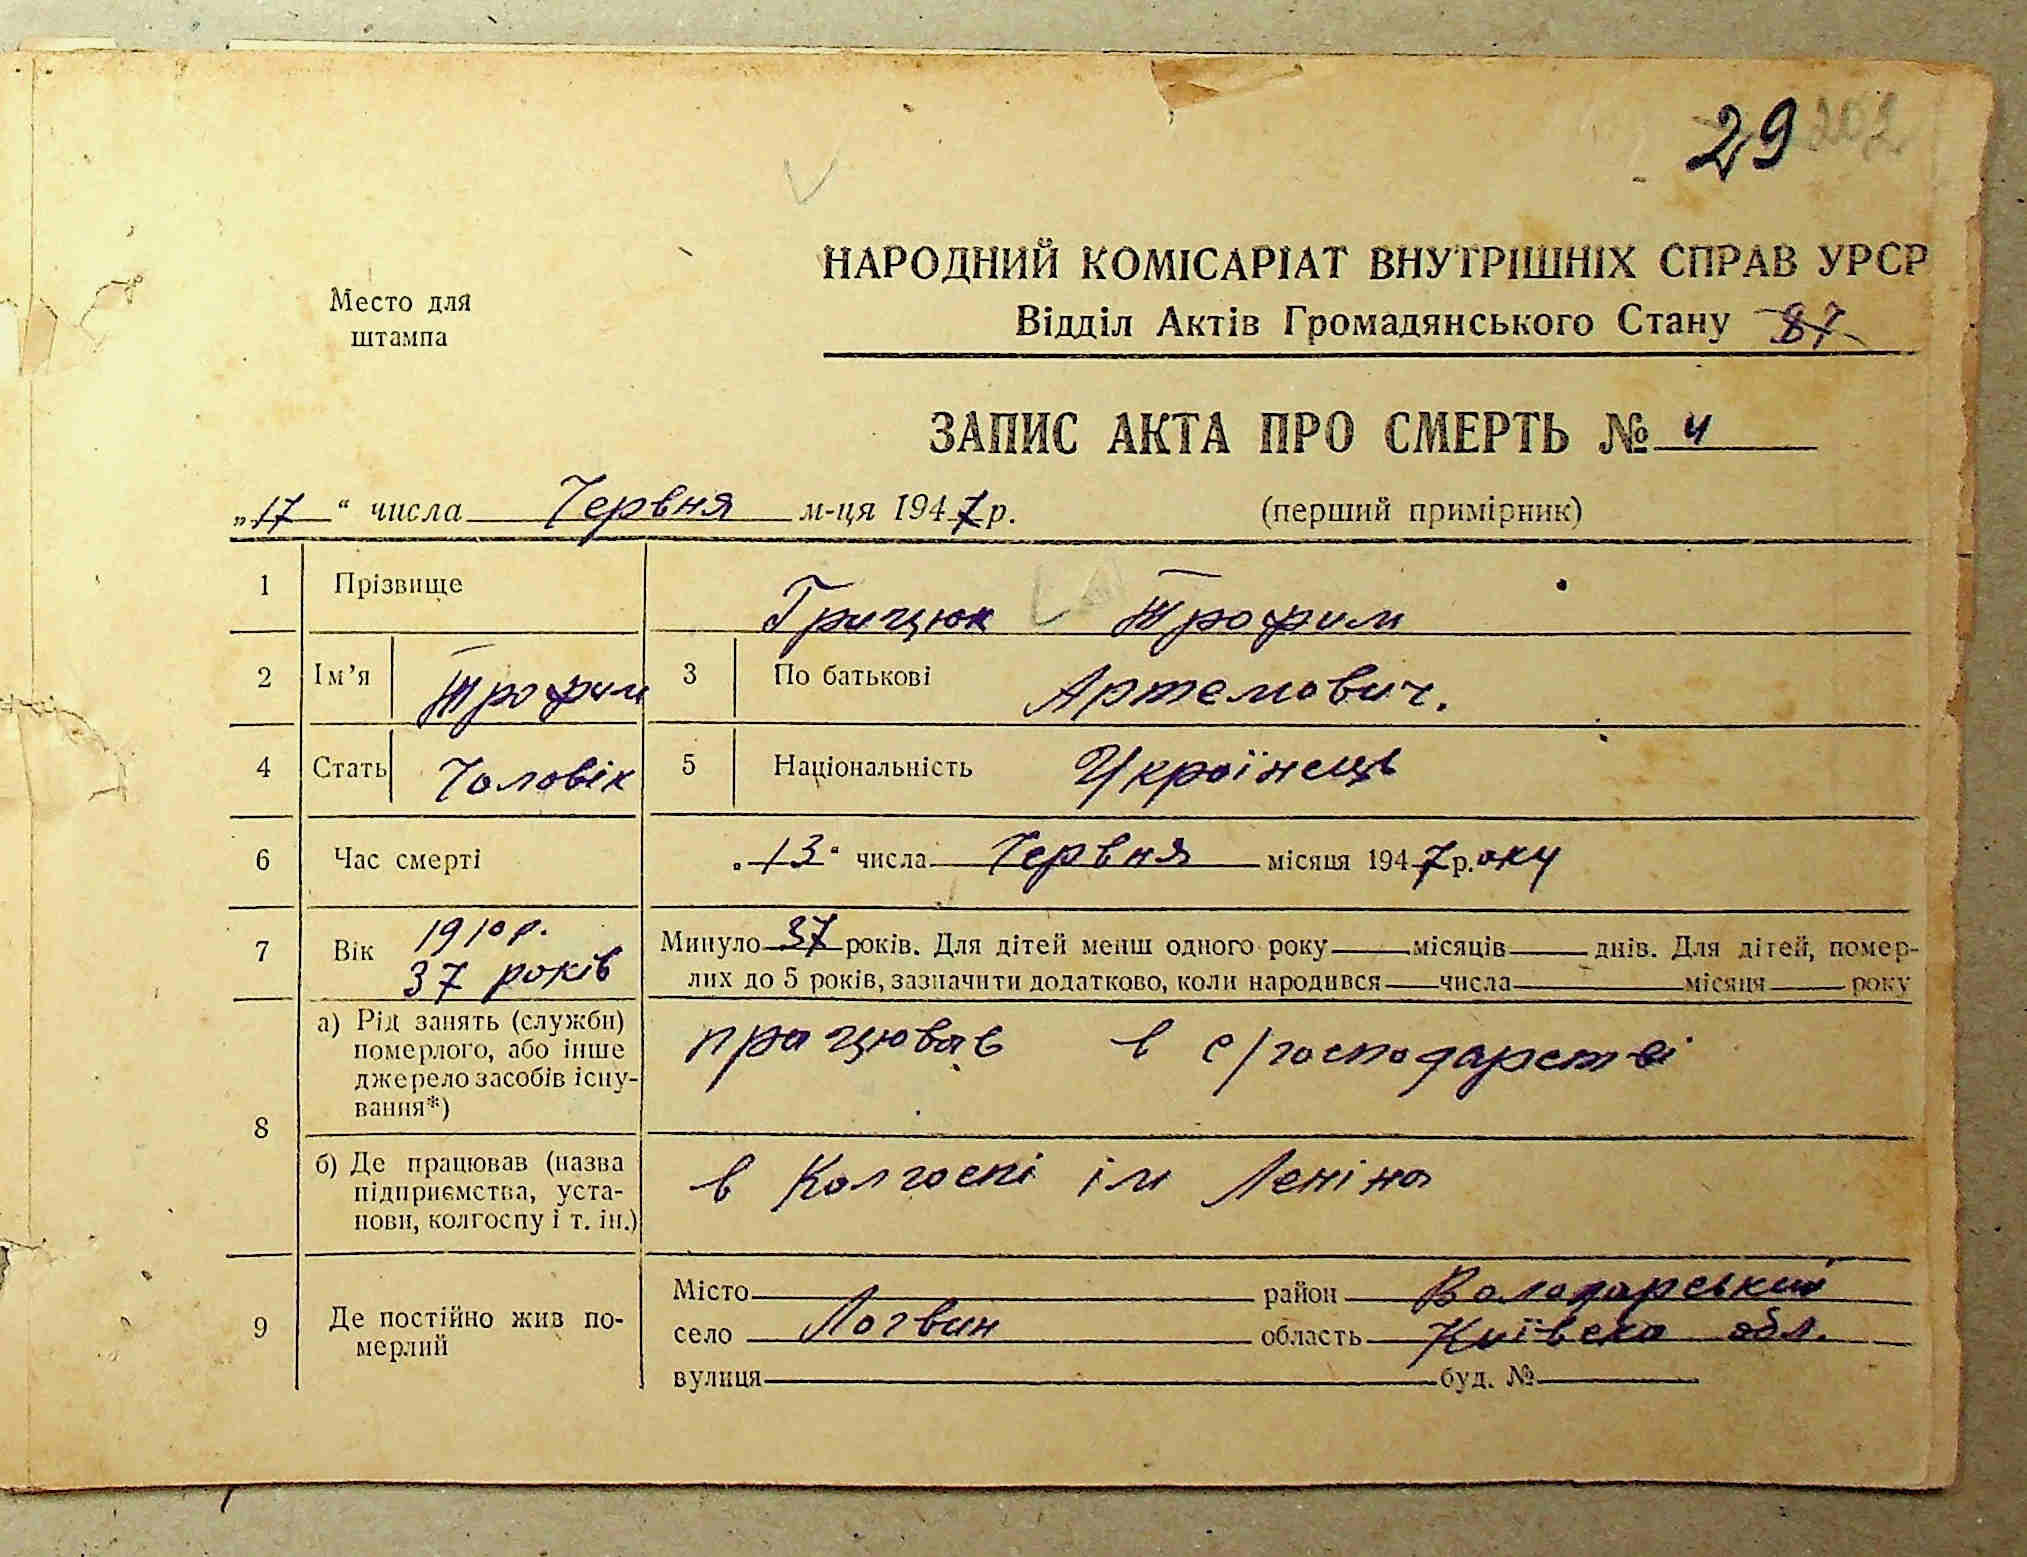 29 202
Место для
штампа
НАРОДНИЙ КОМІСАРІАТ ВНУТРІШНІХ СПРАВ УРСР
Відділ Актів Громадянського Стану 87
ЗАПИС АКТА ПРО СМЕРТЬ № 4
„17“ числа Червня м-ця 1947 р. (перший примірник)
1 Прізвище Грицюк Трофим
2 Ім’я Трофим 3 По батькові Артемович.
4 Стать Чоловік 5 Національність Українець
6 Час смерті „13“ числа Червня місяця 1947 р.оку
7 Вік 1910 р. 37 років
Минуло 37 років. Для дітей менш одного року місяців днів. Для дітей, помер-
лих до 5 років, зазначити додатково, коли народився числа місяця року
8 а) Рід занять (служби)
померлого, або інше
джерело засобів існу-
вання*)
працював в с/господарстві
б) Де працював (назва
підприємства, уста-
нови, колгоспу і т. ін.)
в Колгоспі ім Леніна
9 Де постійно жив по-
мерлий
Місто район Володарський
село Логвин область Київска обл.
вулиця буд. №